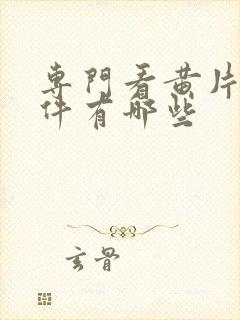 專門看黄片
件有哪些
玄骨